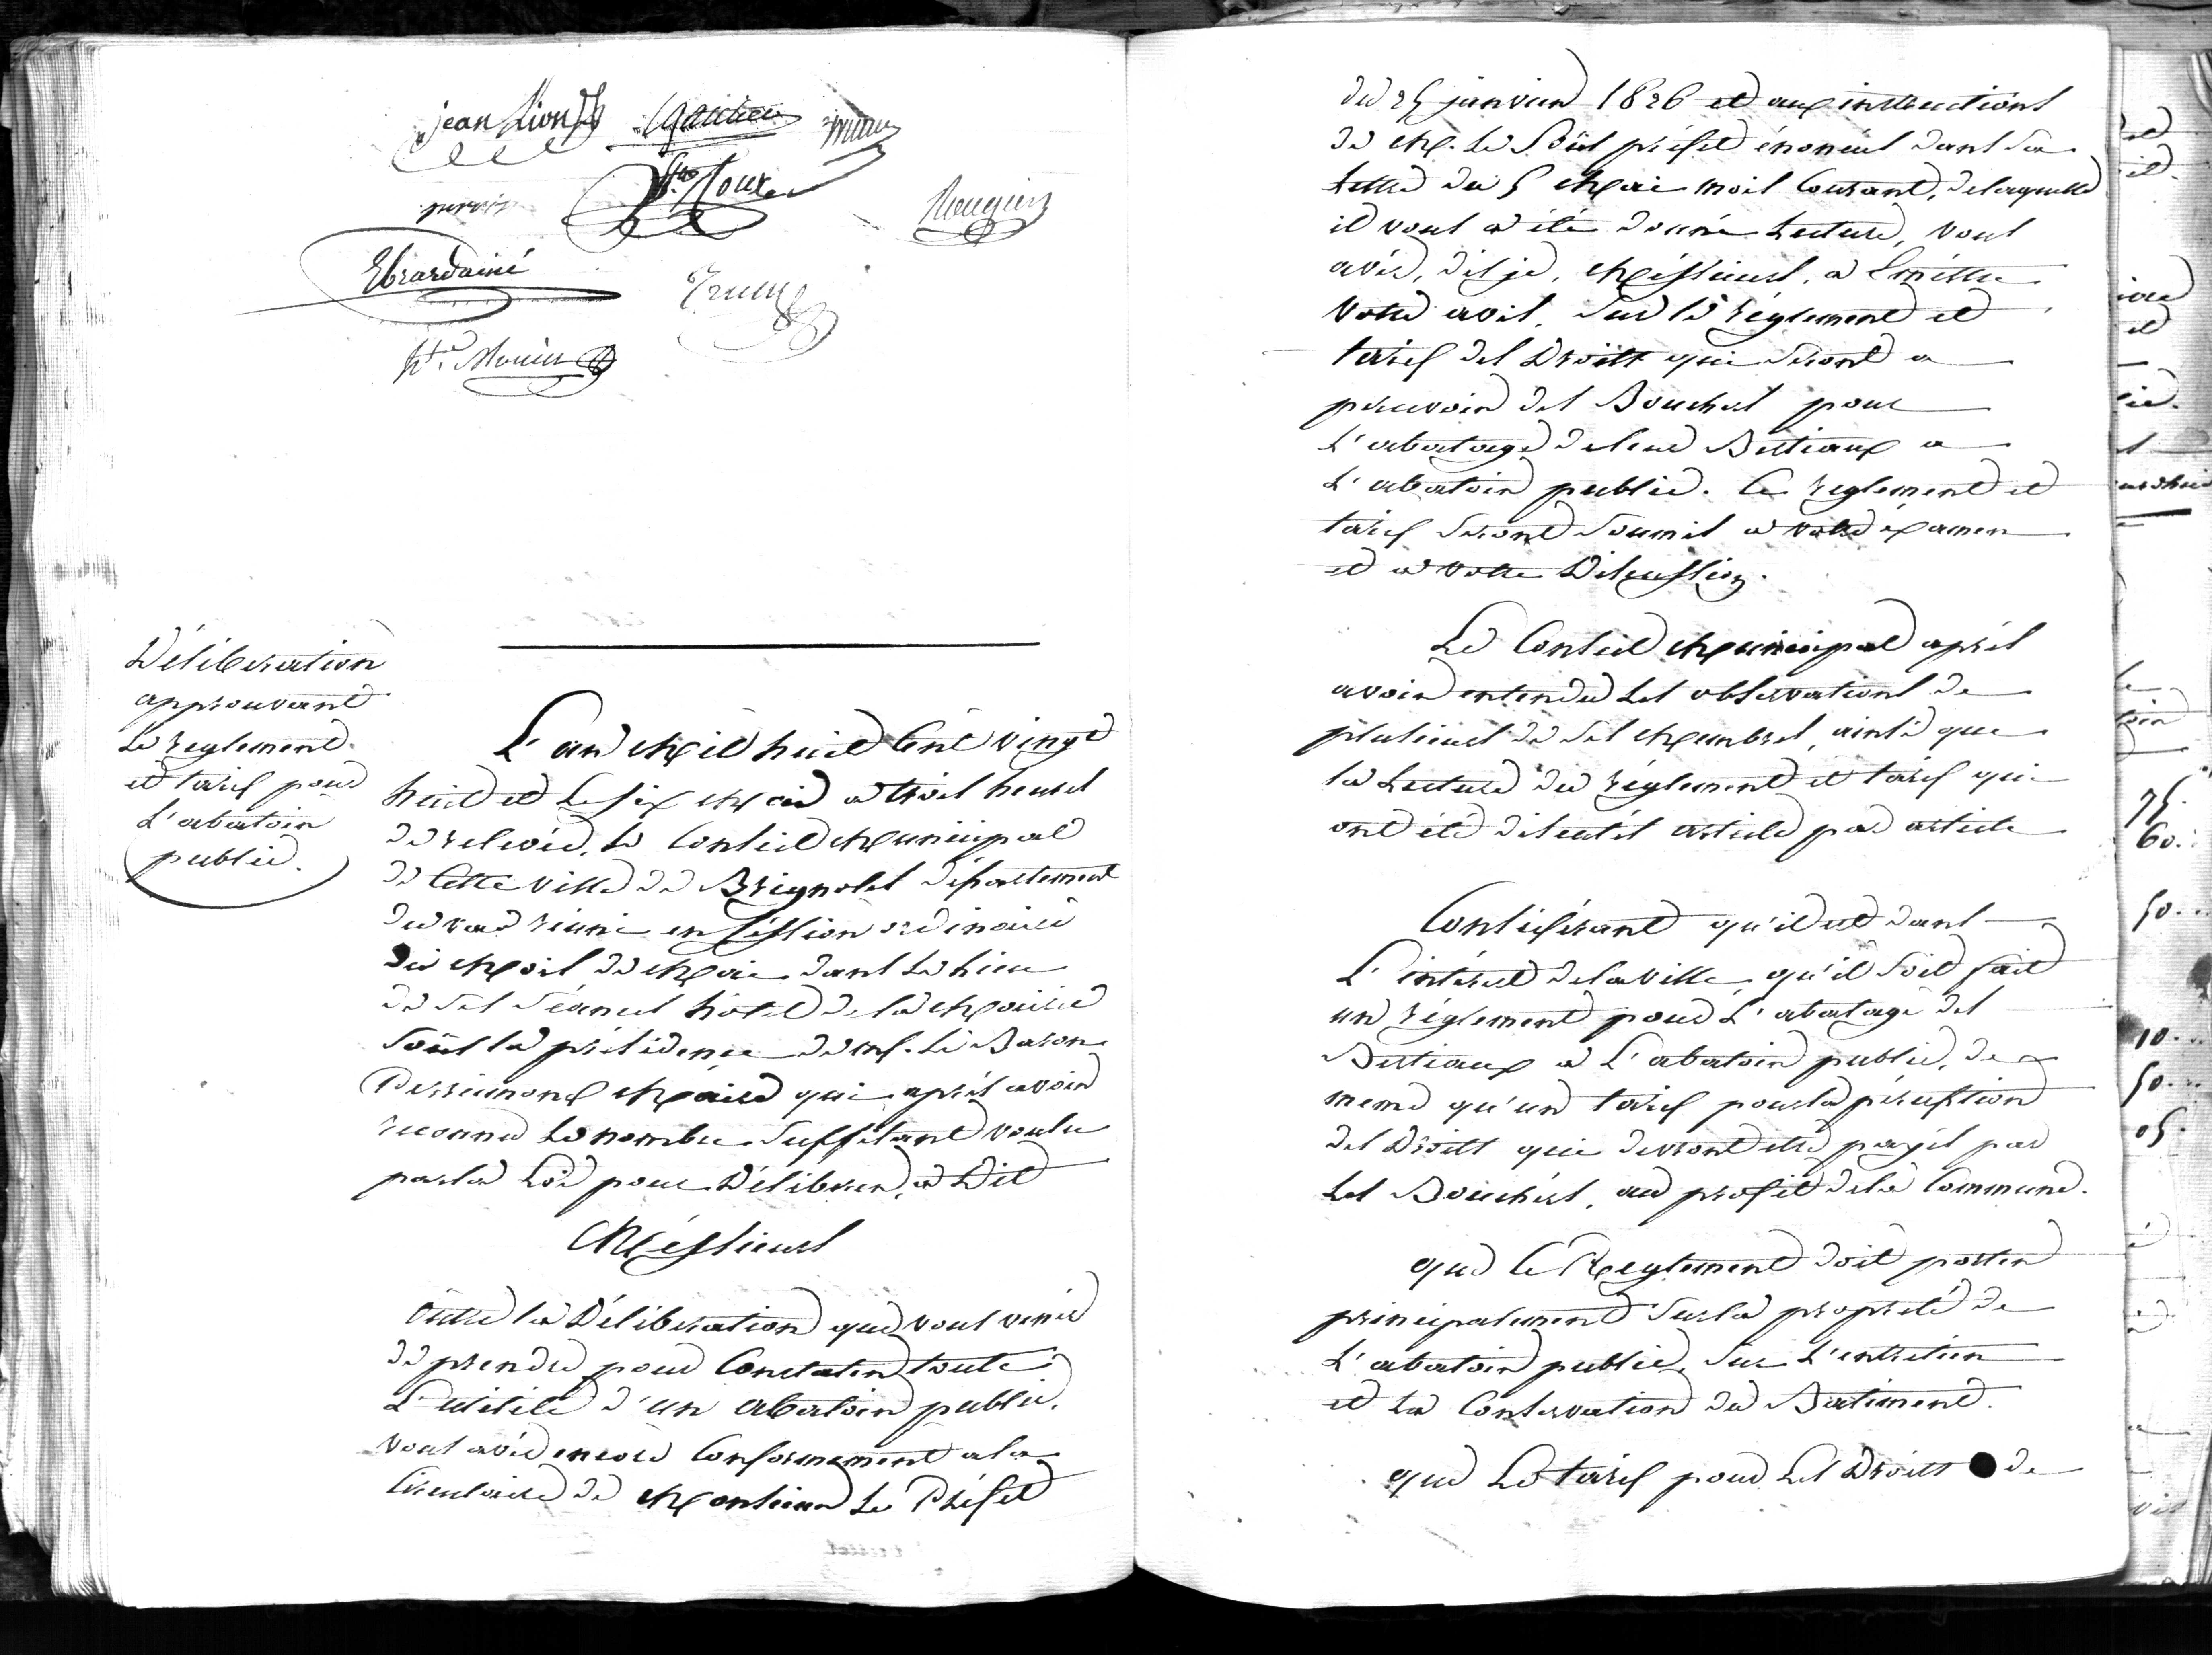 jean Lion
Gautier
Roux
Rougier
Ebrard ainé
Trucy
Délibération
approuvant
Le reglement
et tarif pour
L'abatoir
public.
L'an Mil huit Cent vingt
huit et Le six Mai a trois heures
de relevée, Le Conseil Municipal
de Cette ville de Brignoles département
du var réuni en Session ordinaire
du Mois de Mai dans Le Lieu
de ses Séances hôtel de la Mairie
Sous la présidence de M. Le Baron
Perrimond Maire qui après avoir
reconnu Le nombre Suffisant voulu
par la Loi pour Délibérer, a Dit
Méssieurs
Outre la Délibération que vous venés
de prendre pour Constater toute
L'utilité d'un abatoir public,
vous avés encore Conformement a la
Circulaire de Monsieur Le Préfet
du 25 janvier 1826 et aux instructions
de M. Le Sous préfet énoncées dans Sa
Lettre du 5 Mai mois Courant, de laquelle
il vous a été donné Lecture, vous
avés, dis je, Méssieurs, a Emettre
votre avis, Sur le réglement et
tarif des Droits qui Seront a
percevoir des Bouchers pour
L'abatage de leurs Bestiaux a
L'abatoir public. Ce reglement et
tarif Seront Soumis a votre éxamen
et a votre Discussion.
Le Conseil Municipal après
avoir entendu Les observations de
plusieurs de Ses Membres, ainsi que
la Lecture du réglement et tarif qui
ont été discutés article par article
Considérant qu'il est dans
L'intéret de la ville qu'il Soit fait
un réglement pour L'abatage des
Bestiaux a L'abatoir public, de
meme qu'un tarif pour la pérception
des Droits qui devront etre payés par
Les Bouchers, au profit de la Commune.
que Ce Reglement doit porter
principalement Sur la propreté de
L'abatoir public, Sur L'entretien
et La Conservation du Batiment.
que Le tarif pour Les Droits de